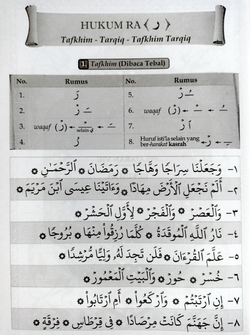 HUKUM RA ﴿ ر ﴾
Tafkhim - Tarqiq - Tafkhim Tarqiq
1. Tafkhim (Dibaca Tebal)
No. Rumus No. Rumus
1. 5.
2. 6.
3. waqaf 7. selain
4. 8. Huruf isti'la selain yang ber-harakat kasrah
١- وَجَعَلْنَا سِرَاجًا وَهَّاجًا • رَمَضَانَ • الرَّحْمَٰنُ •
٢- أَلَمْ نَجْعَلِ الْأَرْضَ مِهَادًا • وَءَاتَيْنَا عِيسَى ابْنَ مَرْيَمَ •
٣- وَالْعَصْرِ • وَالْفَجْرِ • لِأَوَّلِ الْحَشْرِ •
٤- نَارُ اللَّهِ الْمُوقَدَةُ • كُلَّمَا رُزِقُوا مِنْهَا • بُرُوجًا •
٥- عَلَّمَ الْقُرْءَانَ • فَلَن تَجِدَ لَهُ وَلِيًّا مُّرْشِدًا •
٦- خُسْرٍ • حُورٌ • وَالْبَيْتِ الْمَعْمُورِ •
٧- إِنِ ارْتَبْتُمْ • وَارْكَعُوا • أَمِ ارْتَابُوا •
٨- إِنَّ جَهَنَّمَ كَانَتْ مِرْصَادًا • فِي قِرْطَاسٍ • فِرْقَةٍ •